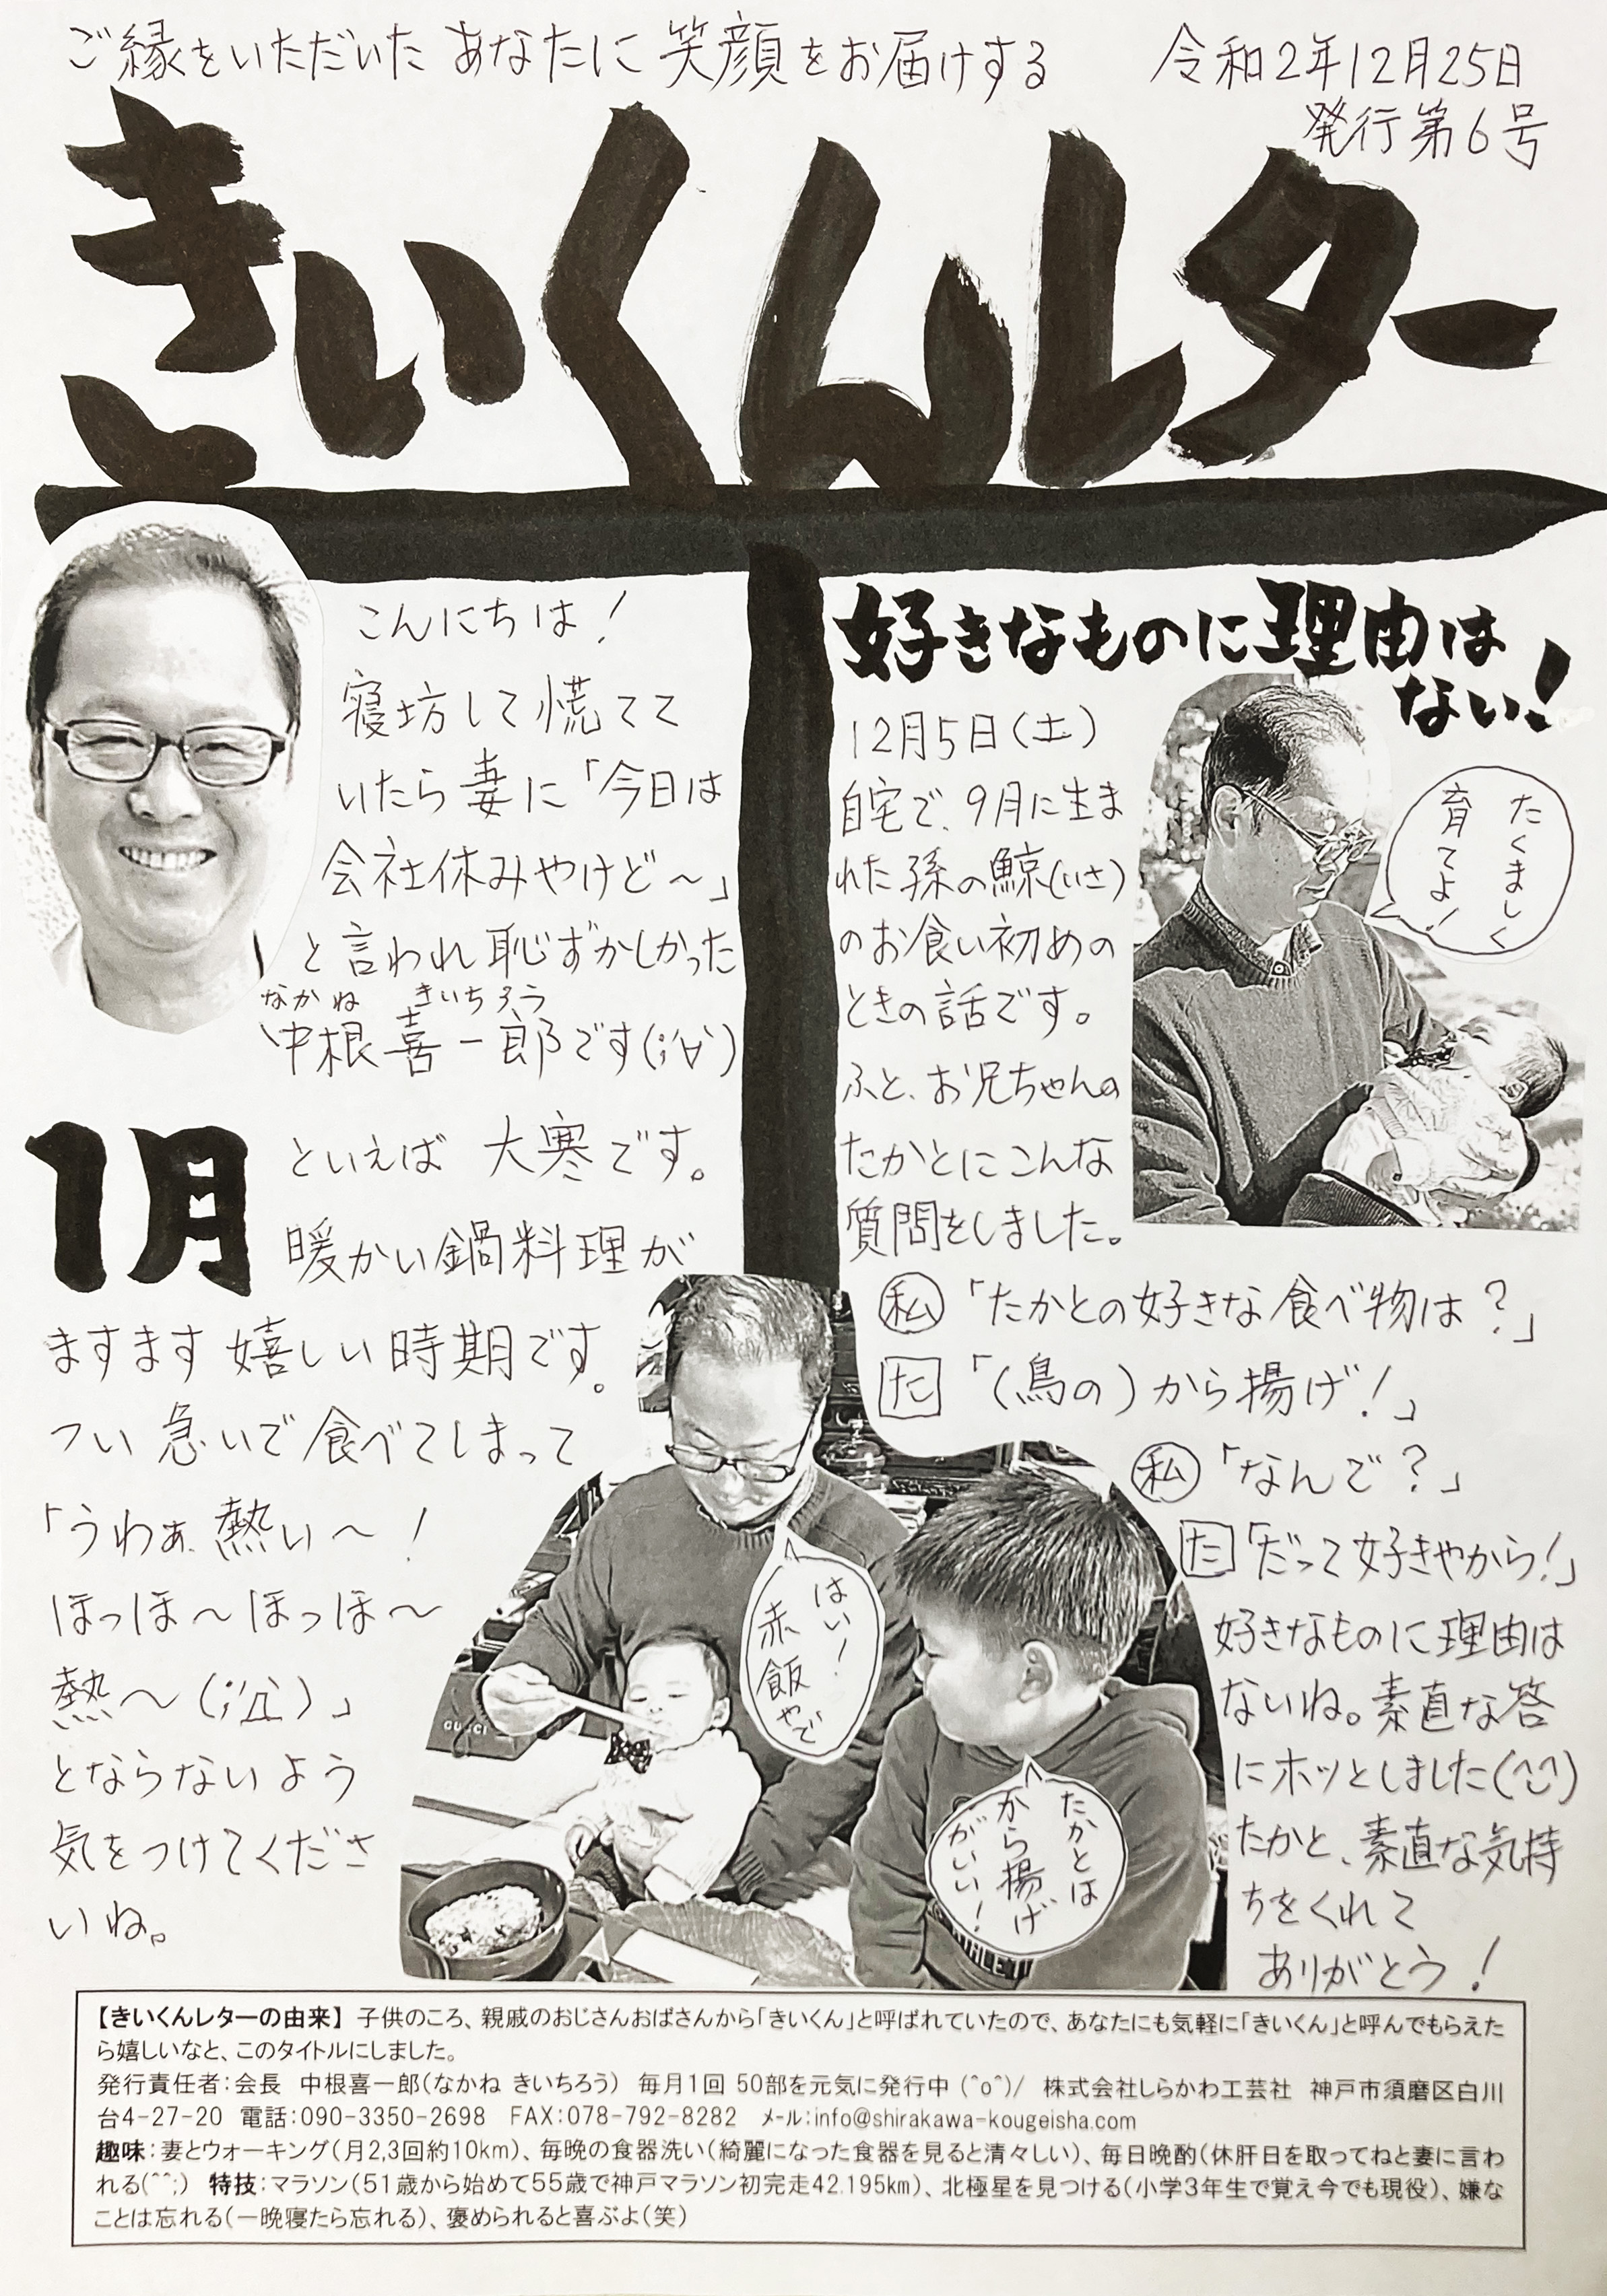 ご縁をいただいた あなたに 笑顔をお届けする
令和2年12月25日
発行第6号
きいくんレター
こんにちは!
寝坊して慌てて
いたら妻に「今日は
会社休みやけど〜」
と言われ恥ずかしかった
なかね きいちろう
中根喜一郎です(;'∀')
1月
といえば 大寒です。
暖かい鍋料理が
ますます嬉しい時期です。
つい急いで食べてしまって
「うわぁ、熱い〜!
ほっほ〜ほっほ〜
熱〜(;'Д')」
とならないよう
気をつけてくださ
いね。
好きなものに理由は
ない!
12月5日(土)
自宅で、9月に生ま
れた孫の鯨(いさ)
のお食い初めの
ときの話です。
ふと、お兄ちゃんの
たかとにこんな
質問をしました。
たくましく
育てよ!
私「たかとの好きな食べ物は?」
た「(鳥の)から揚げ!」
私「なんで?」
た「だって好きやから!」
好きなものに理由は
ないね。素直な答
にホッとしました(^-^)
たかと、素直な気持
ちをくれて
ありがとう!
はい!
赤飯やで
たかとは
から揚げ
がいい!
GUCCI
【きいくんレターの由来】 子供のころ、親戚のおじさんおばさんから「きいくん」と呼ばれていたので、あなたにも気軽に「きいくん」と呼んでもらえた
ら嬉しいなと、このタイトルにしました。
発行責任者:会長 中根喜一郎(なかね きいちろう) 毎月1回 50部を元気に発行中 (^o^)/ 株式会社しらかわ工芸社 神戸市須磨区白川
台4-27-20 電話:090-3350-2698 FAX:078-792-8282 メール:info@shirakawa-kougeisha.com
趣味:妻とウォーキング(月2,3回約10km)、毎晩の食器洗い(綺麗になった食器を見ると清々しい)、毎日晩酌(休肝日を取ってねと妻に言わ
れる(^^;) 特技:マラソン(51歳から始めて55歳で神戸マラソン初完走42.195km)、北極星を見つける(小学3年生で覚え今でも現役)、嫌な
ことは忘れる(一晩寝たら忘れる)、褒められると喜ぶよ(笑)